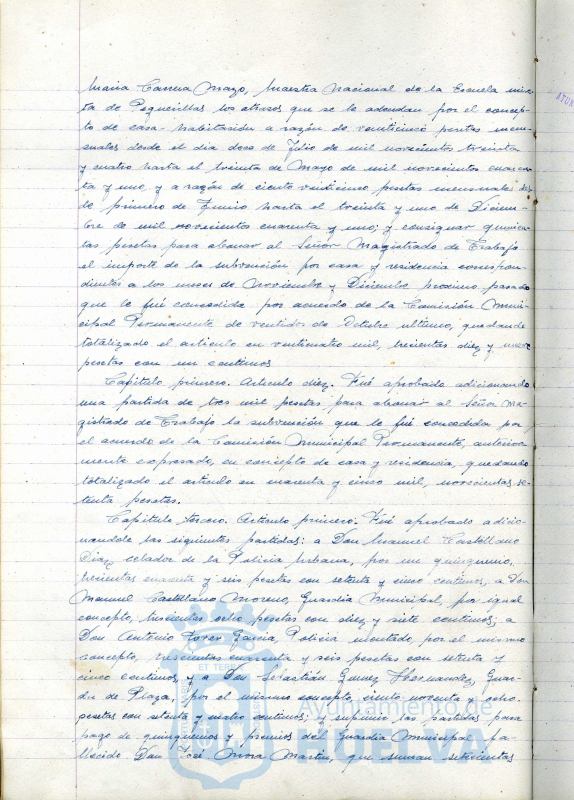 Maria Correa Mayo, Maestra Nacional de la Escuela mix-
ta de Pequeñillas los atrasos que se le adeudan por el concep-
to de casa-habitación a razón de veinticinco pesetas men-
suales desde el dia doce de Julio de mil novecientos treinta
y cuatro hasta el treinta de Mayo de mil novecientos cuaren-
ta y uno, y a razón de ciento veinticinco pesetas mensuales des-
de primero de Junio hasta el treinta y uno de Diciem-
bre de mil novecientos cuarenta y uno; y consignar quinien-
tas pesetas para abonar al Señor Magistrado de Trabajo
el importe de la subvención, por casa y residencia correspon-
dientes a los meses de Noviembre y Diciembre proximo pasado
que le fué concedida por acuerdo de la Comisión Muni-
cipal Permanente de veintidos de Octubre ultimo, quedando
totalizado el articulo en veinticuatro mil, trescientas diez y nueve
pesetas con un centimos
Capitulo primero. Articulo diez. Fué aprobado adicionando
una partida de tres mil pesetas para abonar al Señor Ma-
gistrado de Trabajo la subvención que le fué concedida por
el acuerdo de la Comisión Municipal Permanente, anterior-
mente expresado, en concepto de casa y residencia, quedando
totalizado el articulo en cuarenta y cinco mil, novecientas se-
tenta pesetas.
Capitulo tercero. Articulo primero. Fué aprobado adicio-
nandole las siguientes partidas: a Don Manuel Castellano
Diaz, celador de la Policia Urbana, por un quinquenio,
trescientas cuarenta y seis pesetas con setenta y cinco centimos, a Don
Manuel Castellano Moreno, Guardia Municipal, por igual
concepto, trescientas ocho pesetas con diez y siete centimos; a
Don Antonio Garcia, Policia montado, por el mismo
concepto, trescientas cuarenta y seis pesetas con setenta y
cinco centimos, y a Don Sebastián Gomez Hernandez, Guar-
da de Plaza, por el mismo concepto, ciento noventa y ocho
pesetas con setenta y cuatro centimos; y suprimir las partidas para
pago de quinquenios y premios del Guardia Municipal fa-
llecido Don José Mora Martin, que suman setecientas
Ayuntamiento de
HUELVA